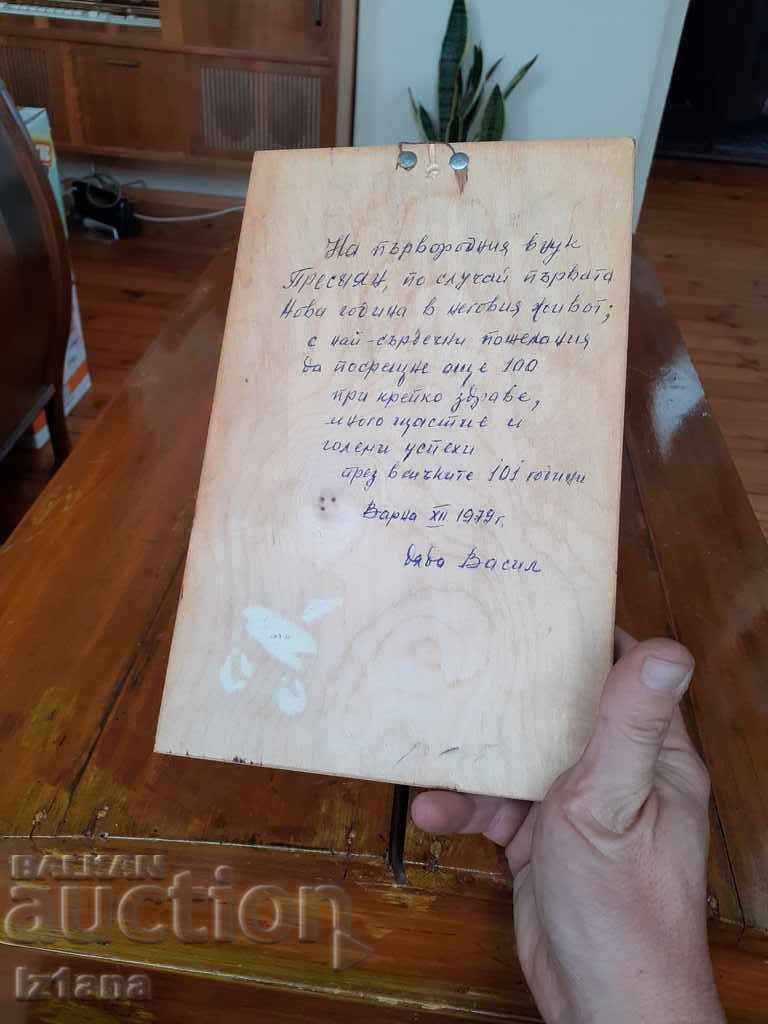 На първородния внук
Пресиян, по случай първата
Нова година в неговия живот;
с най-сърдечни пожелания
да посрещне още 100
при крепко здраве,
много щастие и
големи успехи
през всичките 101 години
Варна XII 1979 г.
дядо Васил
BALKAN
auction
Iz1ana